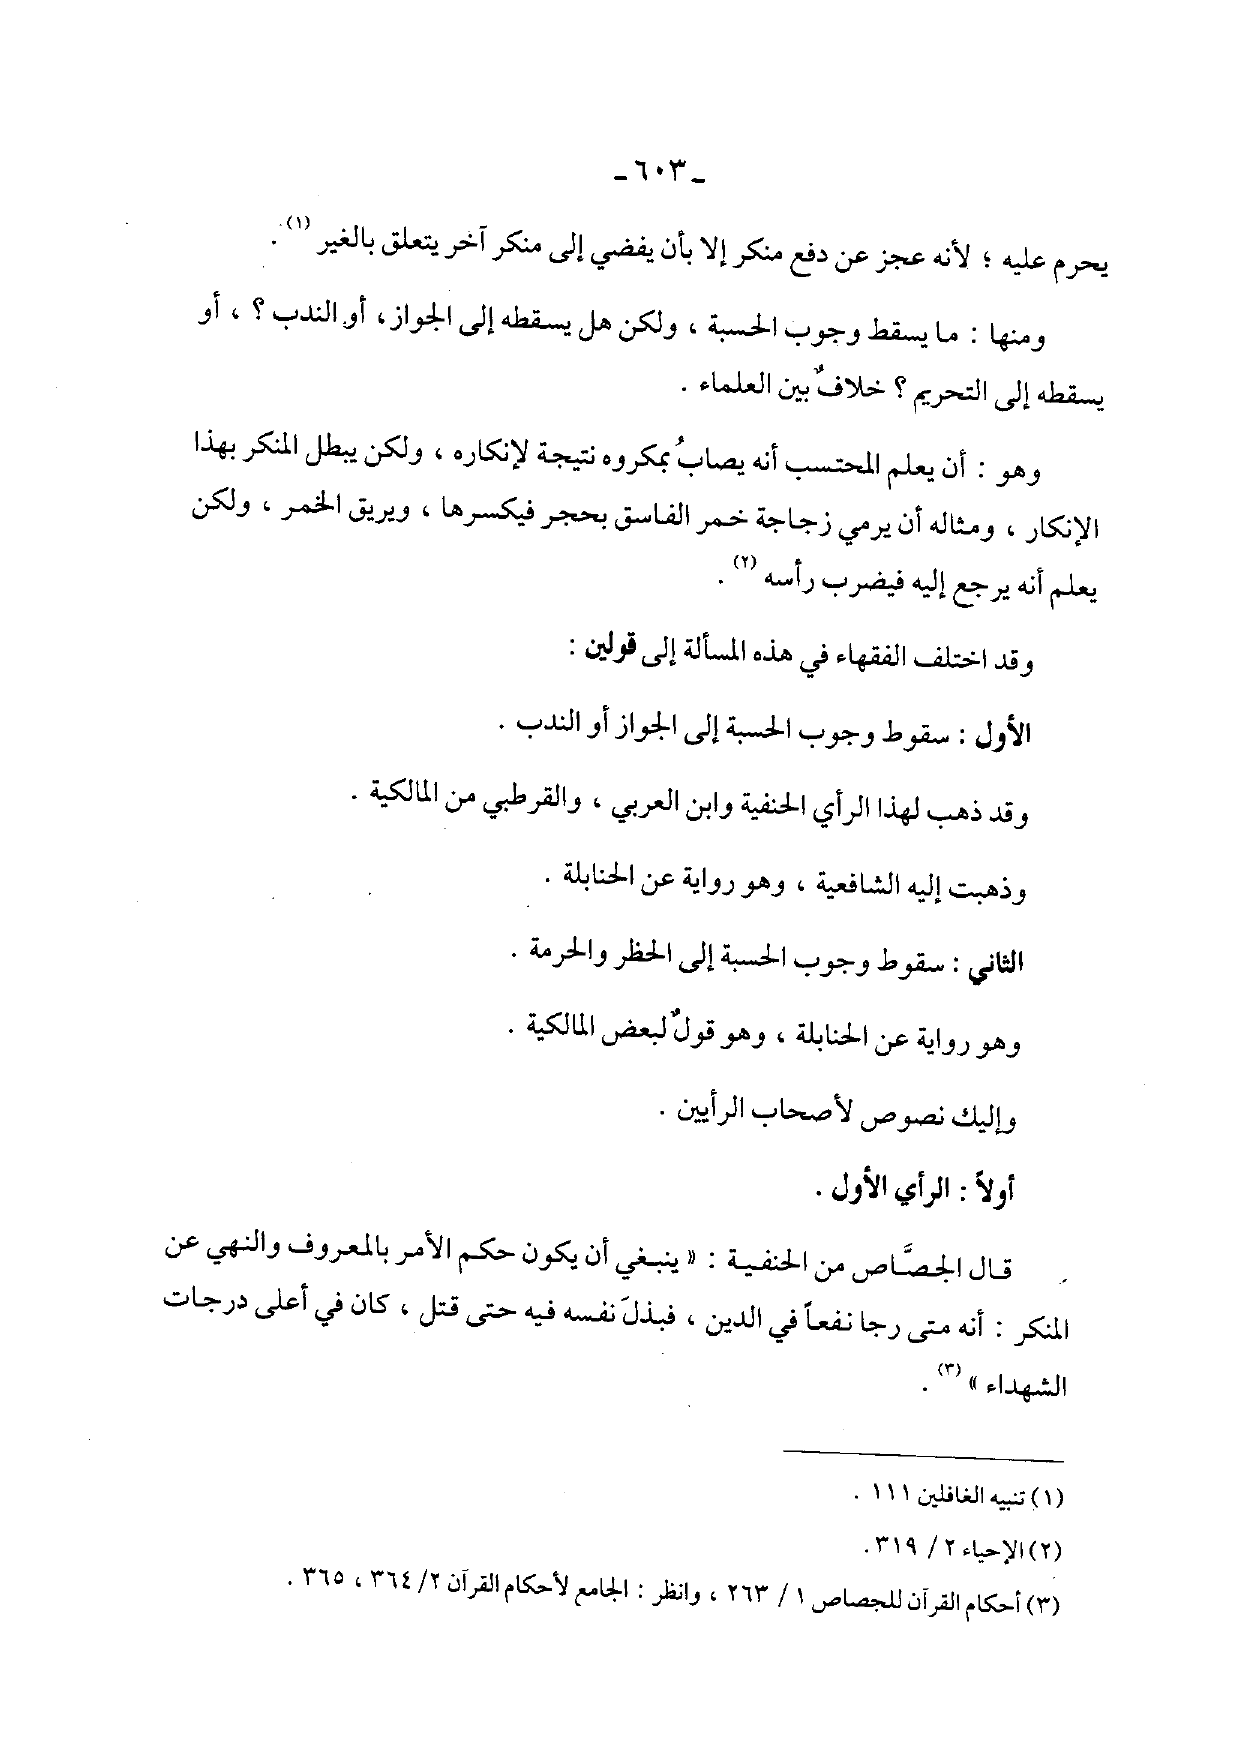 ـ ٦٠٣ ـ
يحرم عليه ؛ لأنه عجز عن دفع منكر إلا بأن يفضي إلى منكر آخر يتعلق بالغير (١) .
ومنها : ما يسقط وجوب الحسبة ، ولكن هل يسقطه إلى الجواز، أو الندب ؟ ، أو
يسقطه إلى التحريم ؟ خلافٌ بين العلماء .
وهو : أن يعلم المحتسب أنه يصابُ بمكروه نتيجة لإنكاره ، ولكن يبطل المنكر بهذا
الإنكار ، ومثاله أن يرمي زجاجة خمر الفاسق بحجر فيكسرها ، ويريق الخمر ، ولكن
يعلم أنه يرجع إليه فيضرب رأسه (٢) .
وقد اختلف الفقهاء في هذه المسألة إلى قولين :
الأول : سقوط وجوب الحسبة إلى الجواز أو الندب .
وقد ذهب لهذا الرأي الحنفية وابن العربي ، والقرطبي من المالكية .
وذهبت إليه الشافعية ، وهو رواية عن الحنابلة .
الثاني : سقوط وجوب الحسبة إلى الحظر والحرمة .
وهو رواية عن الحنابلة ، وهو قولٌ لبعض المالكية .
وإليك نصوص لأصحاب الرأيين .
أولاً : الرأي الأول .
قال الجصَّاص من الحنفية : « ينبغي أن يكون حكم الأمر بالمعروف والنهي عن
المنكر : أنه متى رجا نفعاً في الدين ، فبذلَ نفسه فيه حتى قتل ، كان في أعلى درجات
الشهداء » (٣) .
(١) تنبيه الغافلين ١١١ .
(٢) الإحياء ٢ / ٣١٩.
(٣) أحكام القرآن للجصاص ١ / ٢٦٣ ، وانظر : الجامع لأحكام القرآن ٢/ ٣٦٤ ، ٣٦٥ .